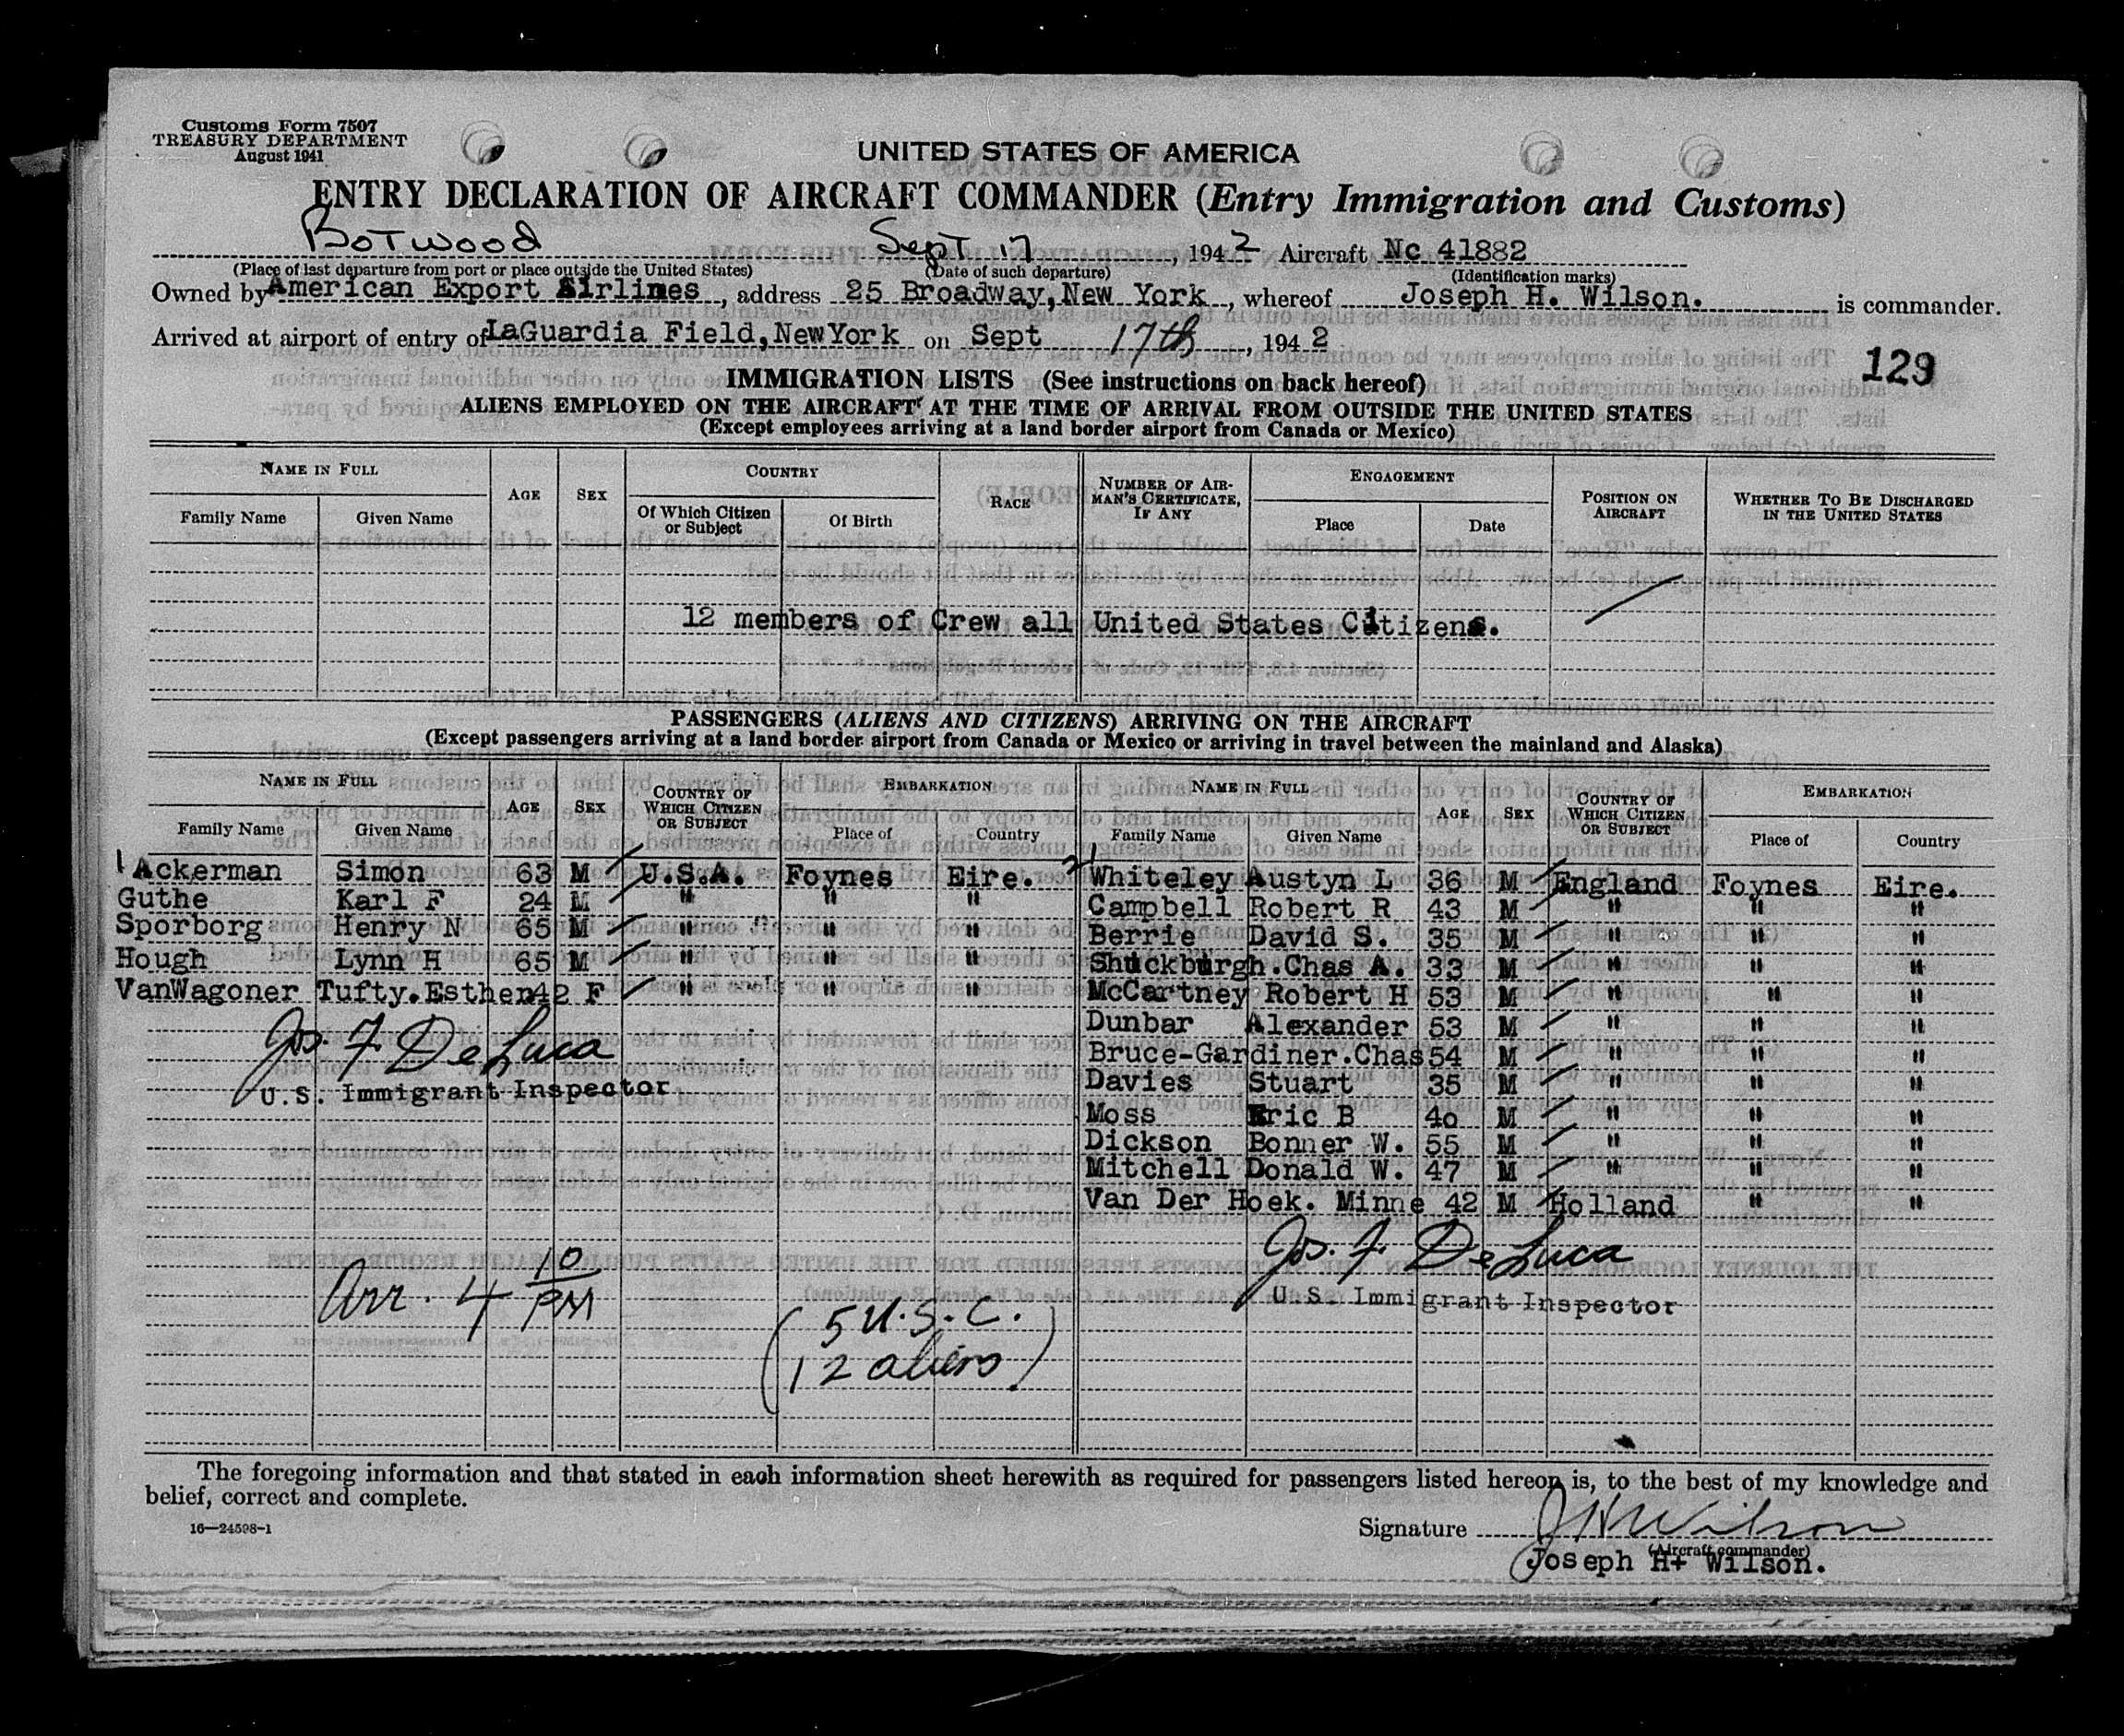 Customs Form 7507
TREASURY DEPARTMENT
August 1941
UNITED STATES OF AMERICA
ENTRY DECLARATION OF AIRCRAFT COMMANDER (Entry Immigration and Customs)
Botwood Sept 17, 1942 Aircraft Nc 41882
(Place of last departure from port or place outside the United States) (Date of such departure) (Identification marks)
Owned by American Export Airlines, address 25 Broadway, New York, whereof Joseph H. Wilson. is commander.
Arrived at airport of entry of LaGuardia Field, NewYork on Sept 17th, 1942
129
IMMIGRATION LISTS (See instructions on back hereof)
ALIENS EMPLOYED ON THE AIRCRAFT AT THE TIME OF ARRIVAL FROM OUTSIDE THE UNITED STATES
(Except employees arriving at a land border airport from Canada or Mexico)
NAME IN FULL AGE SEX COUNTRY RACE NUMBER OF AIRMAN'S CERTIFICATE, IF ANY ENGAGEMENT POSITION ON AIRCRAFT WHETHER TO BE DISCHARGED IN THE UNITED STATES
Family Name Given Name Of Which Citizen or Subject Of Birth Place Date
12 members of Crew all United States Citizens.
PASSENGERS (ALIENS AND CITIZENS) ARRIVING ON THE AIRCRAFT
(Except passengers arriving at a land border airport from Canada or Mexico or arriving in travel between the mainland and Alaska)
NAME IN FULL AGE SEX COUNTRY OF WHICH CITIZEN OR SUBJECT EMBARKATION NAME IN FULL AGE SEX COUNTRY OF WHICH CITIZEN OR SUBJECT EMBARKATION
Family Name Given Name Place of Country Family Name Given Name Place of Country
1 Ackerman Simon 63 M U.S.A. Foynes Eire.
Guthe Karl F 24 M " " "
Sporborg Henry N 65 M " " "
Hough Lynn H 65 M " " "
VanWagoner Tufty.Esther 42 F " " "
Jos. F. DeLuca
U.S. Immigrant Inspector
Arr. 4 10 PM
(5 U.S.C.
12 aliens)
Whiteley Austyn L 36 M England Foynes Eire.
Campbell Robert R 43 M " " "
Berrie David S. 35 M " " "
Shuckburgh.Chas A. 33 M " " "
McCartney Robert H 53 M " " "
Dunbar Alexander 53 M " " "
Bruce-Gardiner.Chas 54 M " " "
Davies Stuart 35 M " " "
Moss Eric B 40 M " " "
Dickson Bonner W. 55 M " " "
Mitchell Donald W. 47 M " " "
Van Der Hoek. Minne 42 M Holland " "
Jos. F. DeLuca
U.S. Immigrant Inspector
The foregoing information and that stated in each information sheet herewith as required for passengers listed hereon is, to the best of my knowledge and
belief, correct and complete.
16—24598-1
Signature JHWilson
(Aircraft commander)
Joseph H+ Wilson.